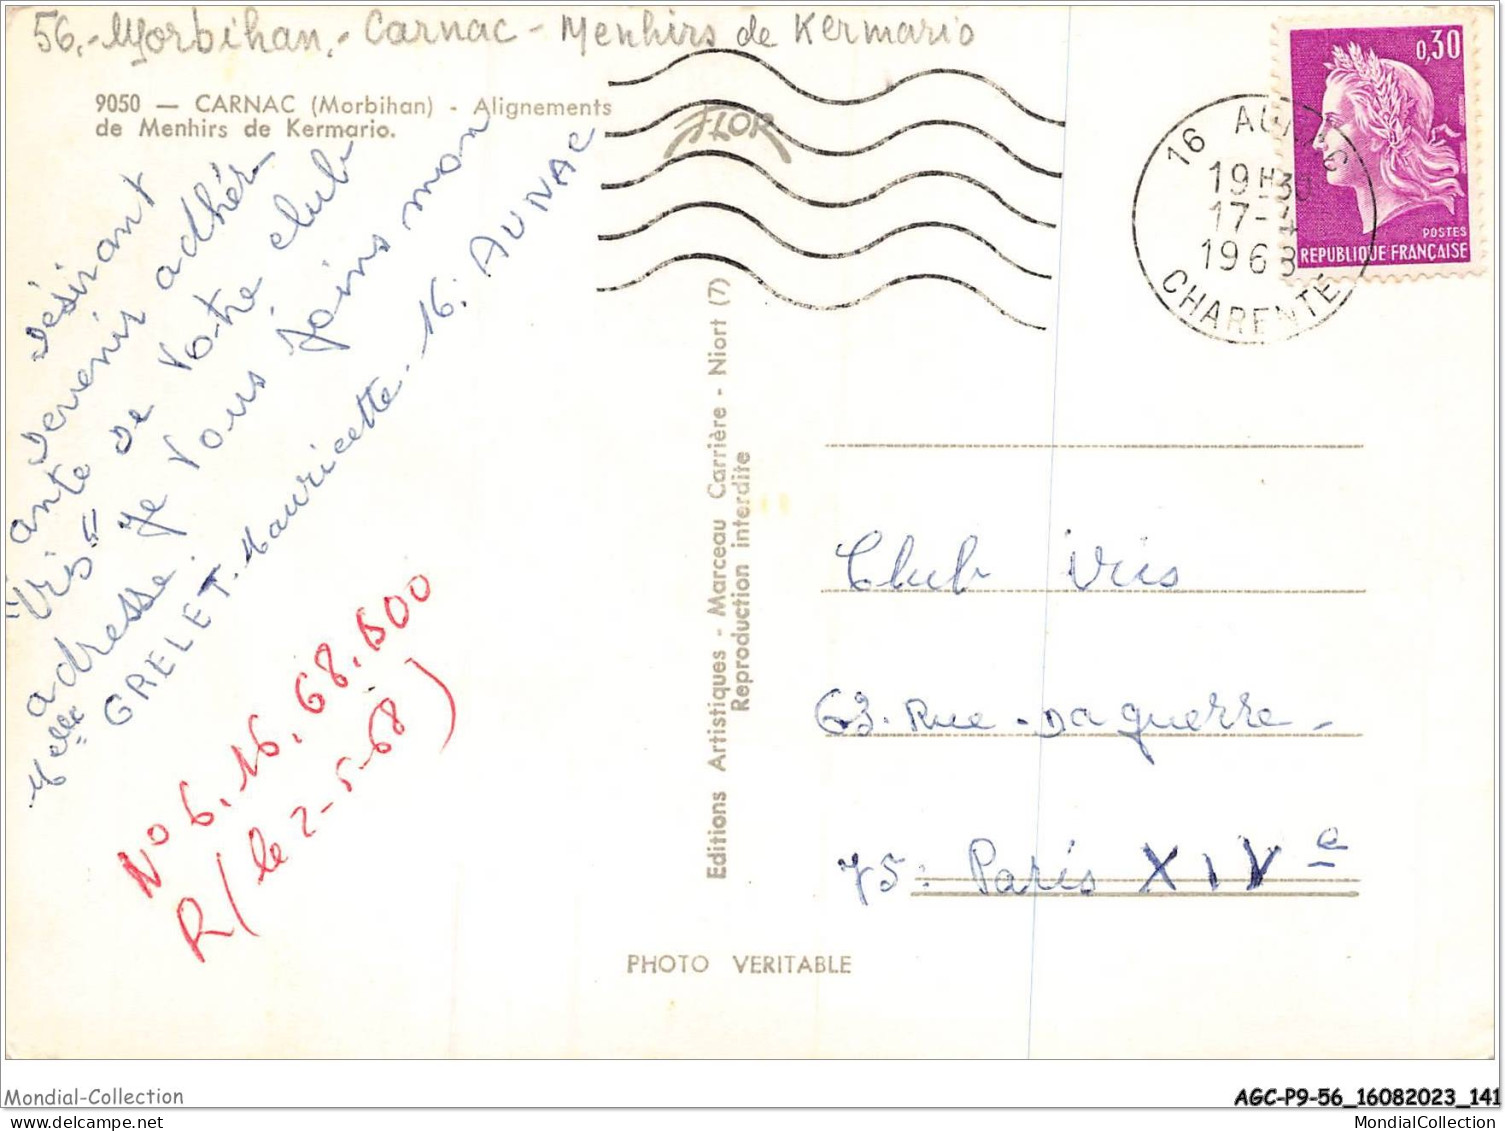 56.- Morbihan.- Carnac - Menhirs de Kermario
9050 — CARNAC (Morbihan) - Alignements
de Menhirs de Kermario.
JFLOR
0,30
POSTES
REPUBLIQUE FRANÇAISE
16 AUNAC
19H30
17-4
1968
CHARENTE
Désirant
devenir adhér
ante de votre club
"Iris" je vous joins mon
adresse.
Melle GRELET. Mauricette. 16. AUNAC
No 6.16.68.500
R/ le 2-5-68)
Editions Artistiques - Marceau Carrière - Niort (7)
Reproduction interdite
Club Iris
63. Rue - Daguerre -
75: Paris XIVe
PHOTO VERITABLE
Mondial-Collection
AGC-P9-56_16082023_141
MondialCollection